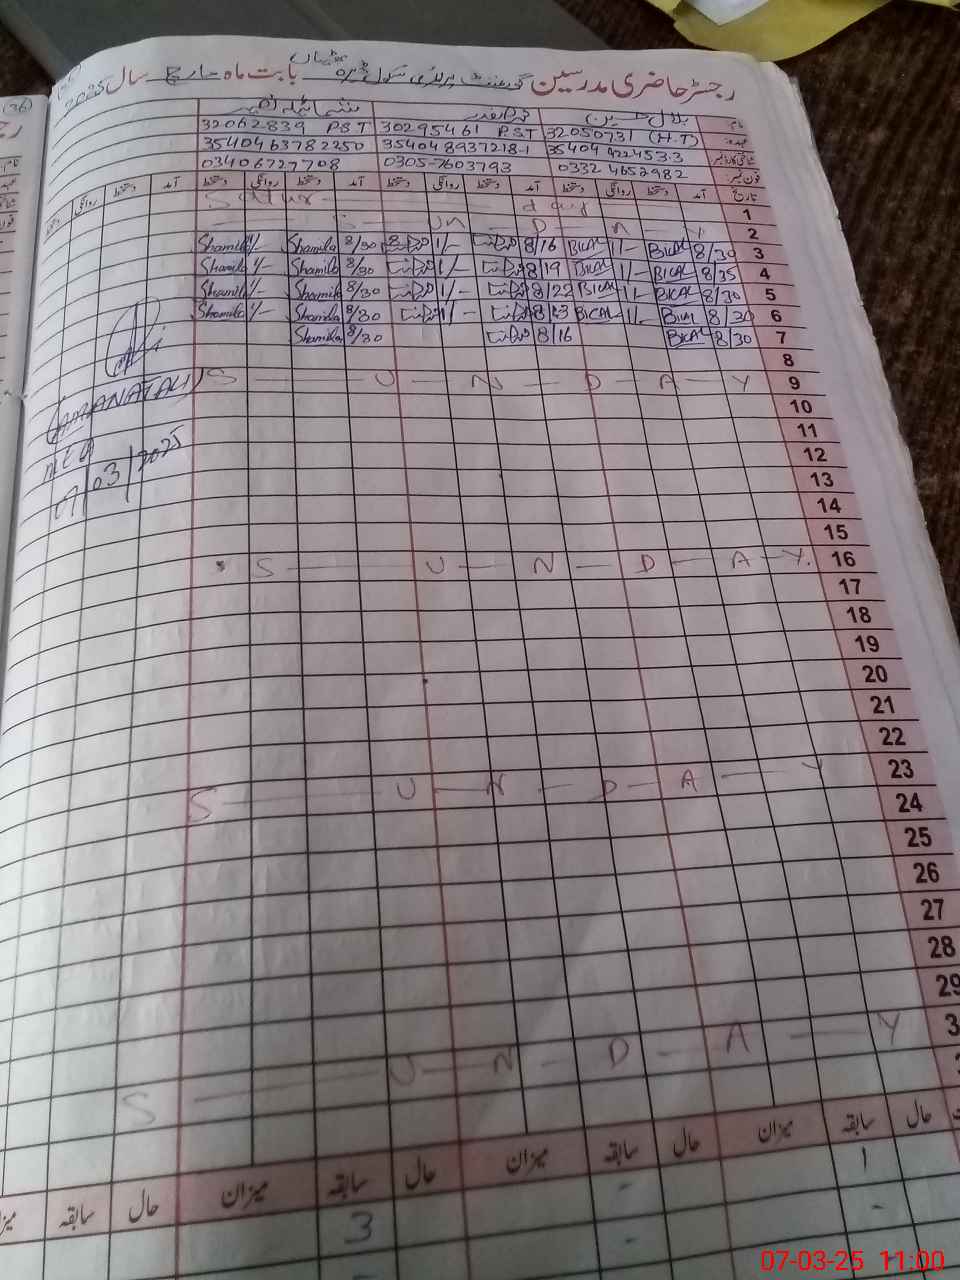 رجسٹر حاضری مدرسین گورنمنٹ پرائمری سکول بابت ماہ مارچ سال 2025
(36)
نام بلال حسین
عہدہ 32050731 (H.T) 30295461 P.ST 32062839 P.S.T
شناختی کارڈ نمبر 35404 35404 8937218-1 3540463782250
فون نمبر 0332 4652982 0305-7603793 03406727708
تاریخ آمد دستخط روانگی دستخط آمد دستخط روانگی دستخط آمد دستخط روانگی دستخط آمد دستخط روانگی دستخط
1 Satur day
2 S UN D A Y
3 8/30 BILAL 1/- BILAL 8/16 1/- 8/30 Shamila 1/- Shamila
4 8/35 BILAL 1/- BILAL 8/19 1/- 8/30 Shamila 1/- Shamila
5 8/30 BILAL 1/- BILAL 8/22 1/- 8/30 Shamila 1/- Shamila
6 8/30 BILAL 1/- BILAL 8/23 1/- 8/30 Shamila 1/- Shamila
7 8/30 BILAL 8/16 8/30 Shamila
8
9 S U N D A Y
(AMANAT ALI)
10
11
12
07/03/2025
13
14
15
16 S U N D A Y.
17
18
19
20
21
22
23 S U N D A Y
24
25
26
27
28
29
S U N D A Y
حال سابقہ میزان حال سابقہ میزان حال سابقہ میزان حال سابقہ
1 - 3
- - -
07-03-25 11:00